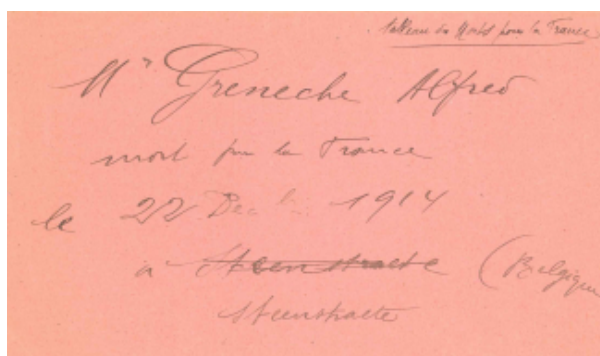 tableau des Morts pour la France
Mr Greneche Alfred
mort pour la France
le 22 Dec 1914
à Steenstraete (Belgique
Steenstraete